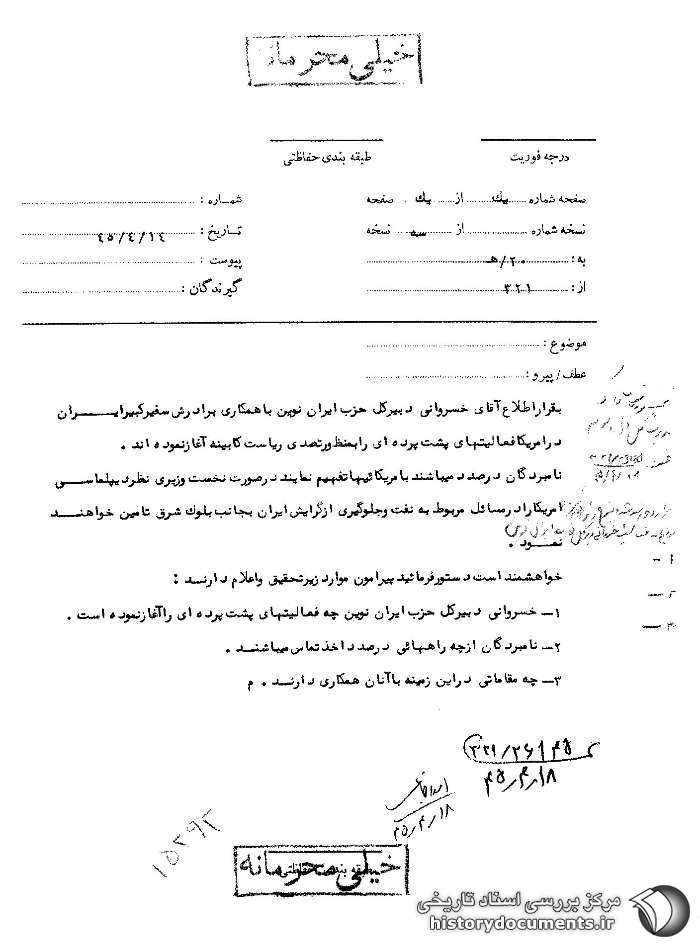 خیلی محرمانه
درجه فوریت
طبقه بندی حفاظتی
صفحه شماره یک از یک صفحه
شماره :
نسخه شماره از سه نسخه
تاریخ : ۴۵/۴/۱۴
به : ۲۰/هـ
پیوست :
از : ۳۲۱
گیرندگان :
موضوع :
عطف/ پیرو :
بقرار اطلاع آقای خسروانی دبیرکل حزب ایران نوین با همکاری برادرش سفیر کبیر ایران
در امریکا فعالیتهای پشت پرده ای را بمنظور تصدی ریاست کابینه آغاز نموده اند .
نامبردگان در صدد میباشند بامریکائیها تفهیم نمایند در صورت نخست وزیری نظر دیپلماسی
امریکا را در مسائل مربوط به نفت و جلوگیری از گرایش ایران بجانب بلوک شرق تامین خواهند
نمود .
خواهشمند است دستور فرمائید پیرامون موارد زیر تحقیق و اعلام دارند :
۱ـ خسروانی دبیرکل حزب ایران نوین چه فعالیتهای پشت پرده ای را آغاز نموده است .
۲ـ نامبردگان از چه راههائی در صدد اخذ تماس میباشند .
۳ـ چه مقاماتی در این زمینه با آنان همکاری دارند . م
۱ -
۲ -
۳ -
۳۲۱/۲۶۱۴۵
۴۵/۴/۱۸
۴۵/۴/۱۸
۱۵۲۹۲
خیلی محرمانه
طبقه بندی حفاظتی
مرکز بررسی اسناد تاریخی
historydocuments.ir